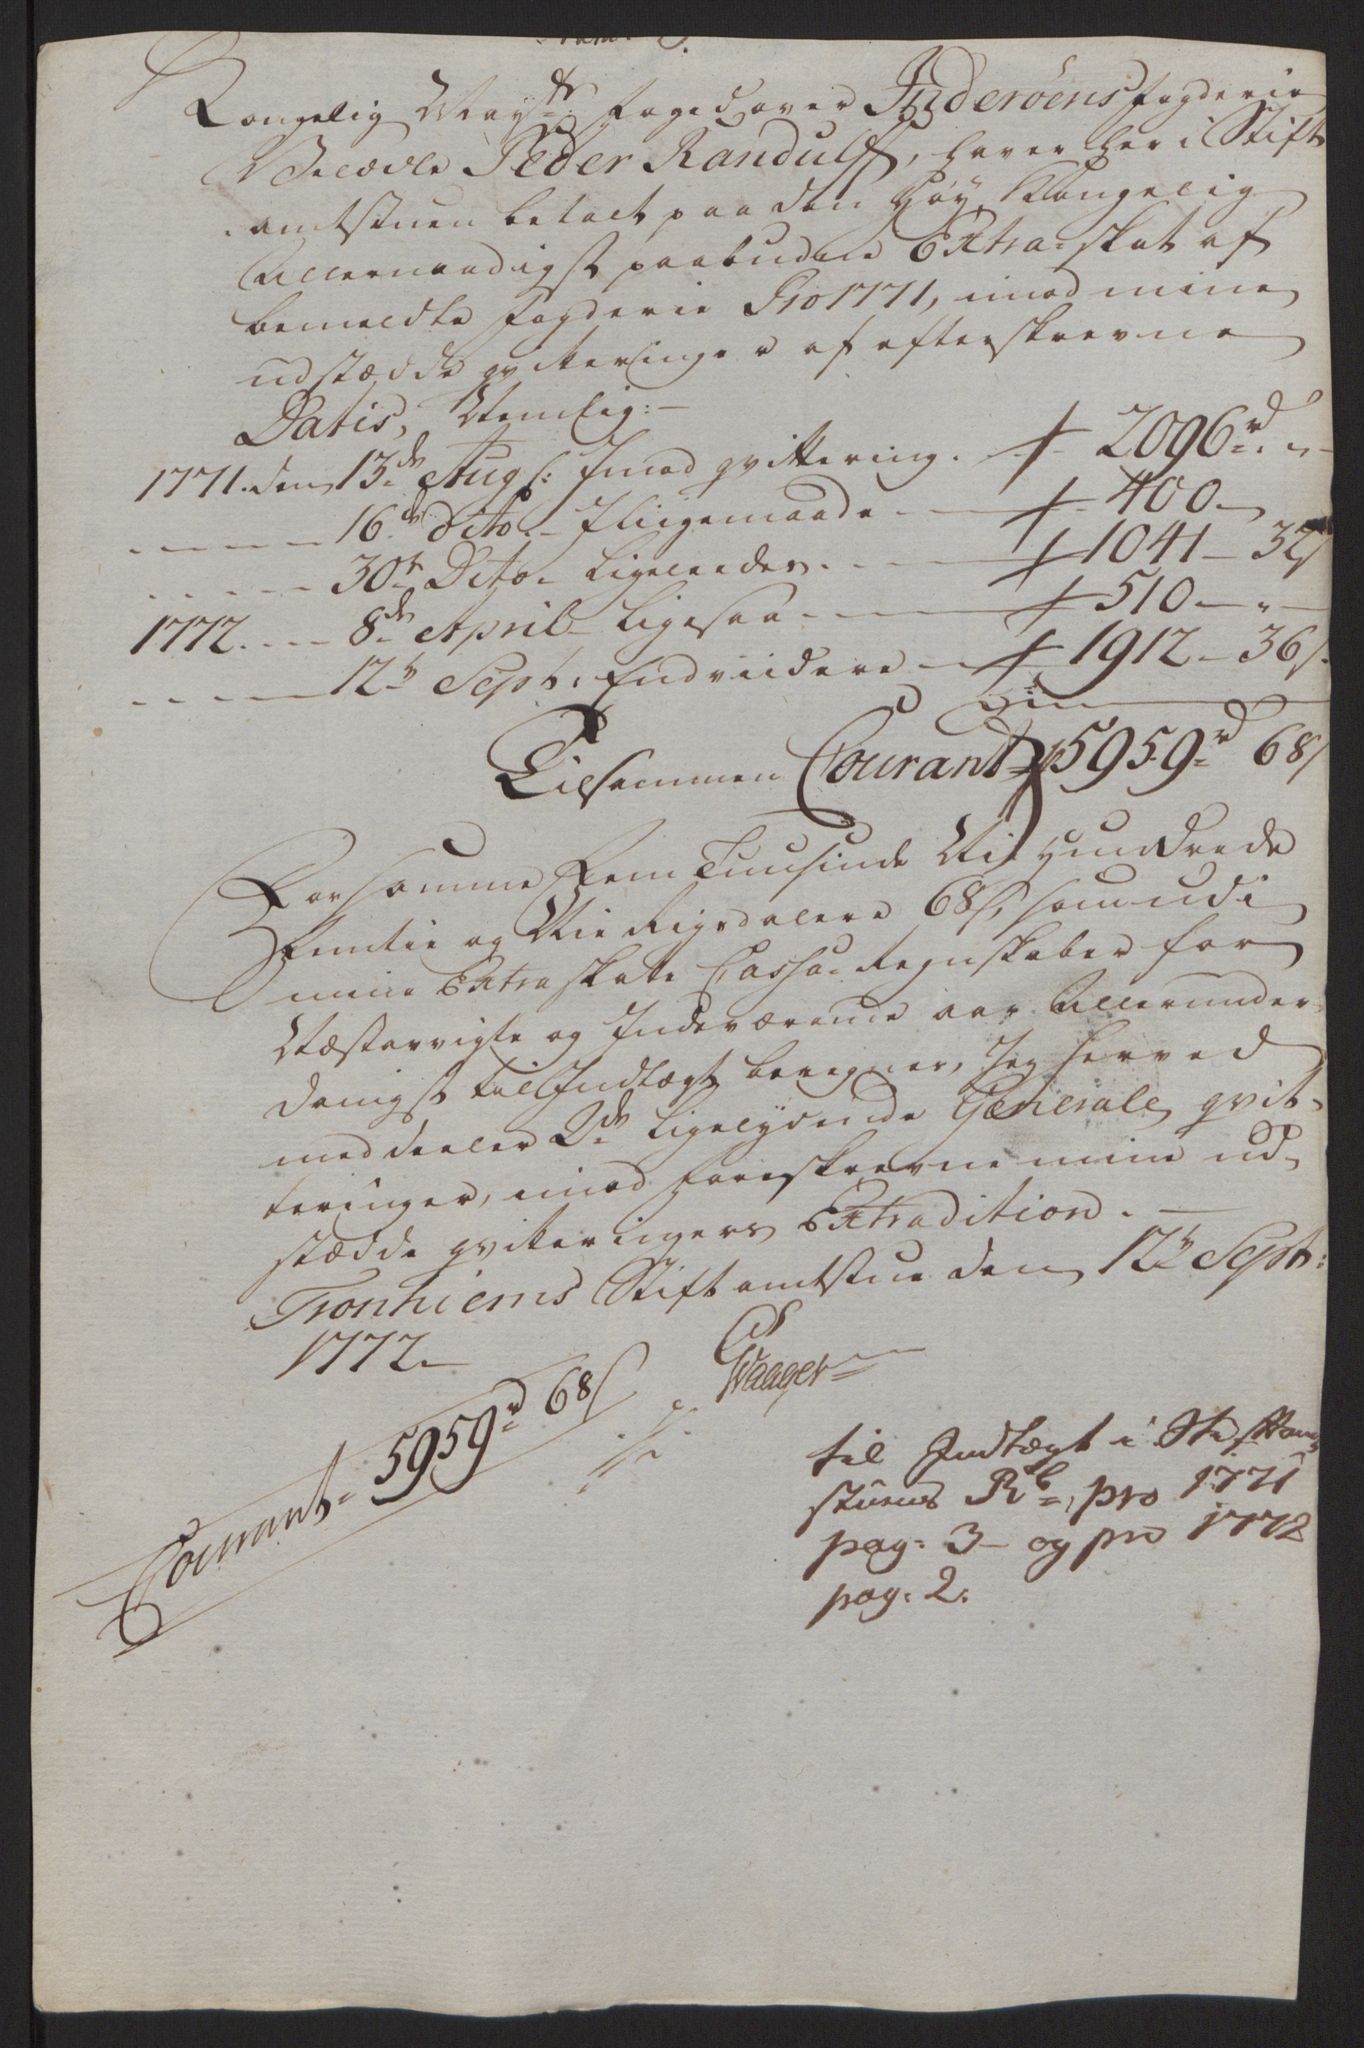 Kongelig Mayts: Foged over Inderöens fogderie
Velædle Peder Randulff, haver her i Stift
amtstuen betalt paa den Høy Kongelig
Allernaadigst paabudne Extra-skat af
bemeldte fogderie Pro 1771, imod mine
udstædde qvitteringer af efterskrevne
Datis, Nemlig:-
1771. den 13de Aug: Imod qvittering. - 2096rd. " -
16de Dito. - Iliigemaade - 400 -
30te Dito - Ligeleedes. - 1041 - 32s
1772. - 8de April - Ligesaa - 510 - " -
12te Sept: Endviidere - 1912 - 36s.
Tilsammen Courant 5959rd 68s
For samme Fem Tuusinde Nie Hundrede
Femtie og Nie Rigsdalere 68s, som udi
mine Extraskatte Cassa-Regnskaber for
Næstavvigte og Indeværende aar Allerunder-
danigst til Indtægt beregner, Jeg herved
meddeeler 2de ligelydende Generale qvit-
teringer, imod foreskrevne mine ud-
stædde qvitteringers Extradition. -
Tronhiems Stiftamtstue den 12te Sept:
1772 -
Waager
Courant - 5959rd 68s
til Indtægt i Stiftam
stuens Rb, pro 1771
pag: 3 - og pro 1772
pag: 2.